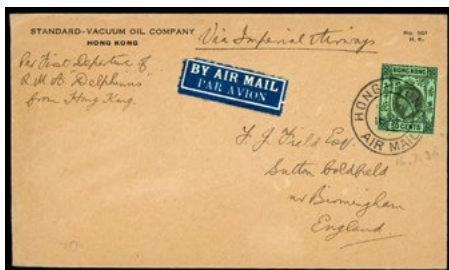 STANDARD-VACUUM OIL COMPANY
HONG KONG
Via Imperial Airways
No. 101
H. K.
Per First Departure of
R.M.A. Delphinus
from Hong Kong.
BY AIR MAIL
PAR AVION
HONG KONG
CENTS
HONG
AIR MAIL
F. J. Field Esq
Sutton Coldfield
nr Birmingham
England